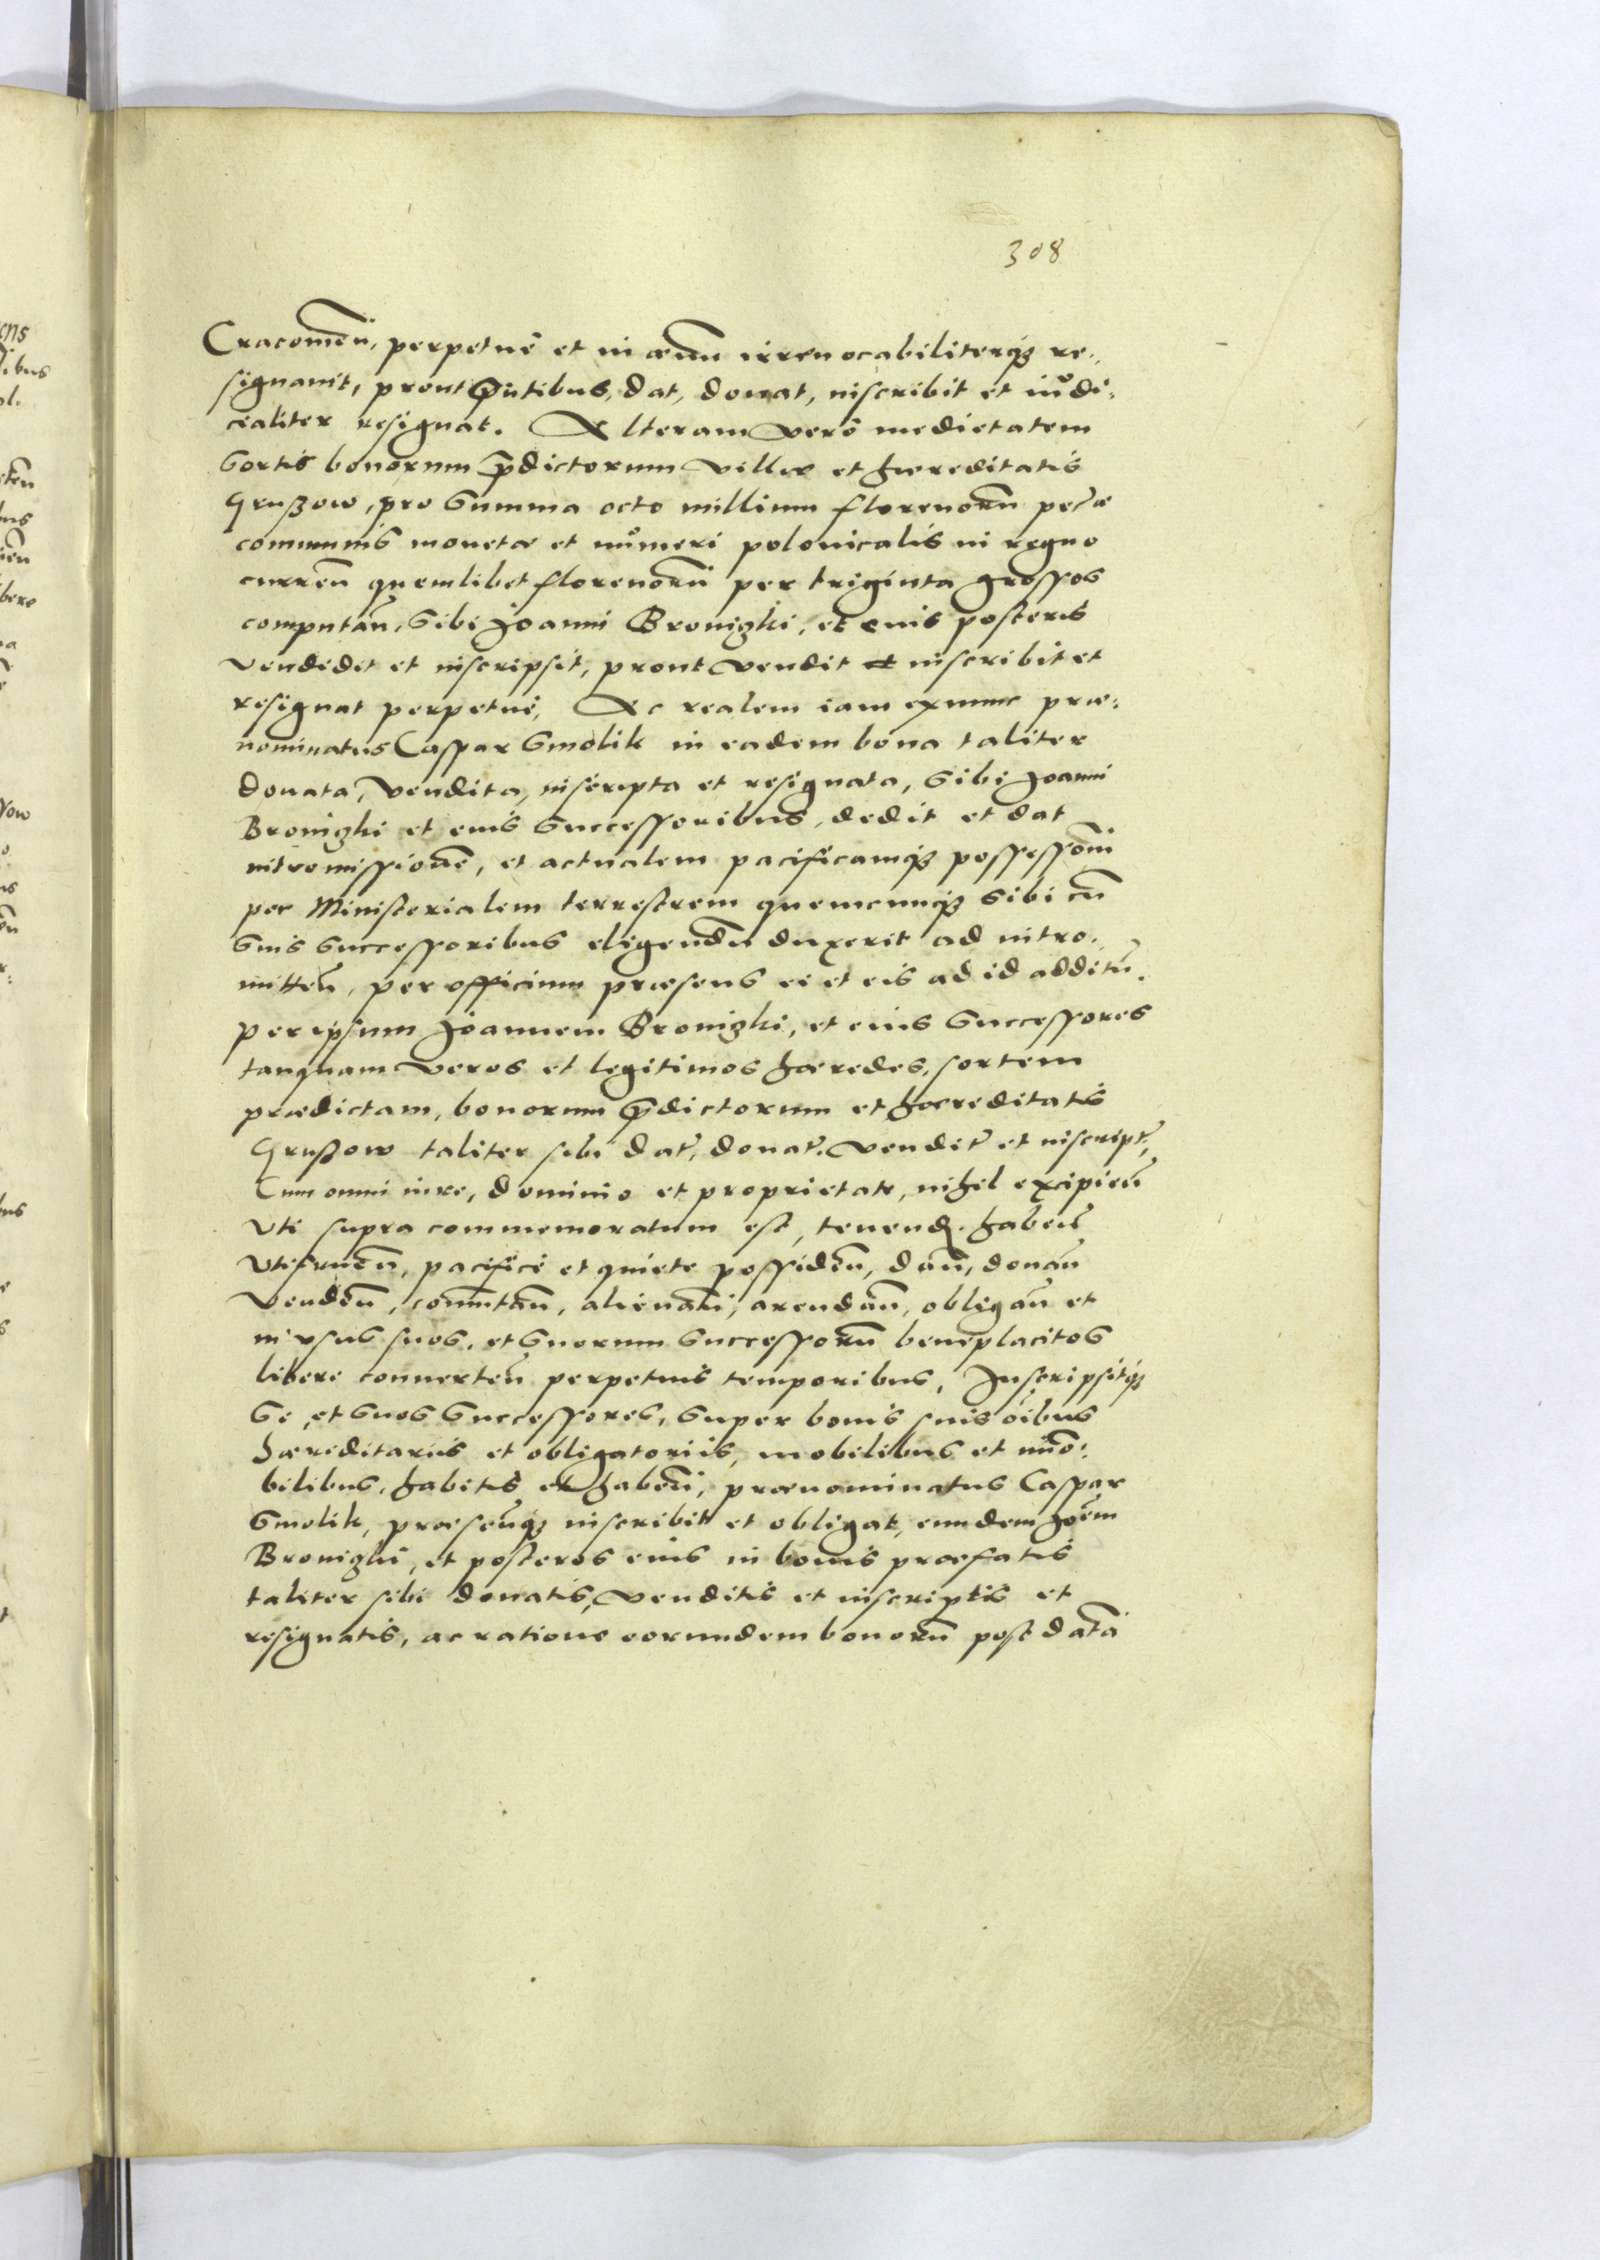 308
Cracovieñ, perpetuè et in æuum irreuocabiliterq3 re-
signauit, prout p̃ntibus, dat, donat, inscribit et iudi-
cialiter resignat. Alteram verò medietatem
sortis bonorum p̃dictorum villæ et hæreditatis
Grußow, pro summa octo millium florenorũ pecˀæ
communis monetæ et numeri polonicalis in regno
curreñ quemlibet florenorũ per triginta grossos
computañ, sibi Joanni Broniȝki, et euis posteris
vendidit et inscripsit, prout vendit et inscribit et
resignat perpetuè, Ac realem iam exnunc præ-
nominatus Caspar Smolik in eadem bona taliter
donata, vendita, inscripta et resignata, sibi Joanni
Broniȝki et eius successoribus, dedit et dat
intromissionẽ, et actualem pacificamq3 possessioñ
per Ministerialem terrestrem quemcunq3 sibi cũ
suis successoribus eligendũ duxerit ad intro-
mitteñ, per officium præsens ei et eis ad id additũ.
per ipsum Joannem Broniȝki, et eius successores
tanquam veros et legitimos hæredes, sortem
prædictam, bonorum p̃dictorum et hæreditatis
Grußow taliter sibi datˀ, donatˀ, venditˀ et inscriptˀ,
Cum omni iure, dominio et proprietate, nihil excipieñ
vti supra commemoratum est, tenend. habeñ
vtifrueñ, pacificè et quiete possideñ, dañ, donañ
vendeñ, comutañ, alienañ, arendañ, obligañ et
in vsus suos, et suorum successorũ beneplacitos
libere conuerteñ perpetuis temporibus, Inscripsitq3
se, et suos successores, super bonis suis oĩbus
hæreditariis et obligatoriis, mobilibus et im̃o-
bilibus, habitis et habeñ, prænominatus Caspar
Smolik, præseñq3 inscribit et obligat, eundem Joẽm
Broniȝki, et posteros eius in bonis præfatis
taliter sibi donatis, venditis et inscriptis et
resignatis, ac ratione eorundem bonorũ post datã